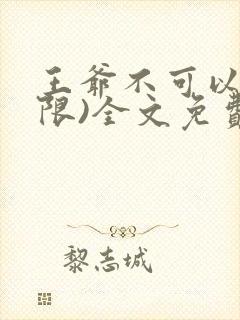 王爷不可以
限)全文免費
黎志城